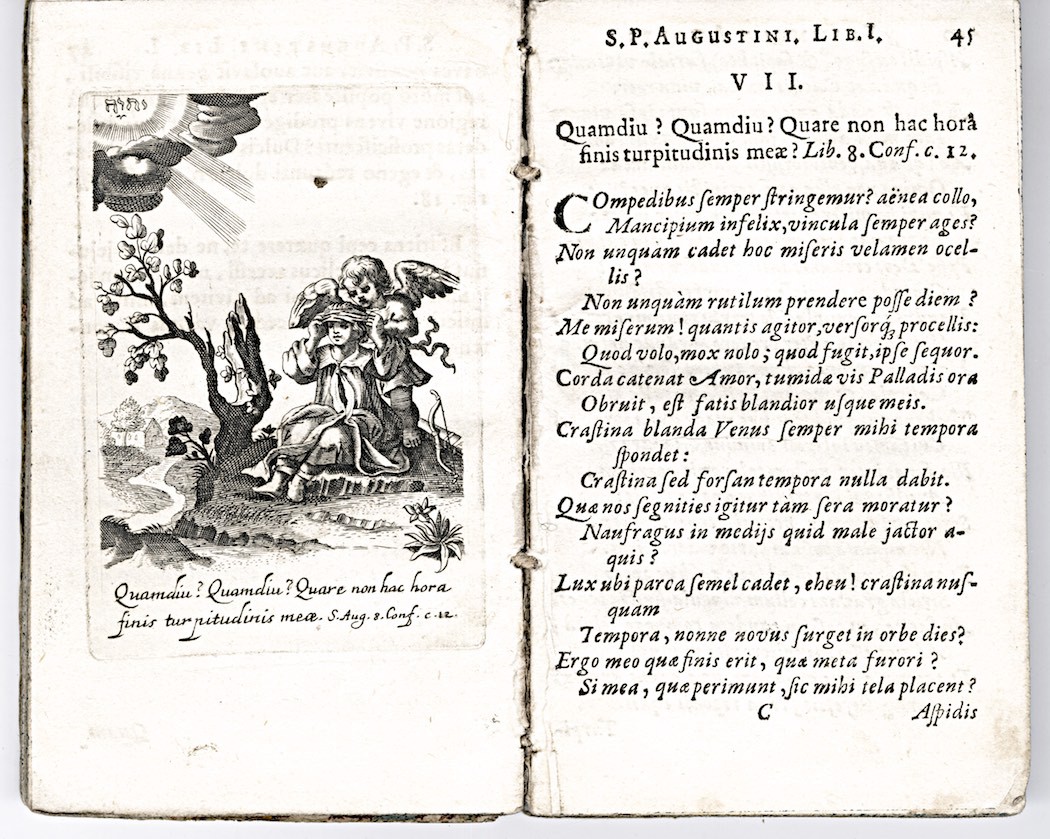 יהוה
Quamdiu? Quamdiu? Quare non hac hora
finis turpitudinis meæ. S. Aug. 8. Conf. c. 12.
S. P. AUGUSTINI. LIB. I. 45
VII.
Quamdiu? Quamdiu? Quare non hac horâ
finis turpitudinis meæ? Lib. 8. Conf. c. 12.
COmpedibus ſemper ſtringemur? aënea collo,
Mancipium infelix, vincula ſemper ages?
Non unquàm cadet hoc miſeris velamen ocel-
lis?
Non unquàm rutilum prendere poſſe diem?
Me miſerum! quantis agitor, verſorq; procellis:
Quod volo, mox nolo; quod fugit, ipſe ſequor.
Corda catenat Amor, tumidæ vis Palladis ora
Obruit, eſt fatis blandior uſque meis.
Craſtina blanda Venus ſemper mihi tempora
ſpondet:
Craſtina ſed forſan tempora nulla dabit.
Quæ nos ſegnities igitur tàm ſera moratur?
Naufragus in medijs quid male jactor a-
quis?
Lux ubi parca ſemel cadet, eheu! craſtina nuſ-
quàm
Tempora, nonne novus ſurget in orbe dies?
Ergo meo quæ finis erit, quæ meta furori?
Si mea, quæ perimunt, ſic mihi tela placent?
C Aſpidis